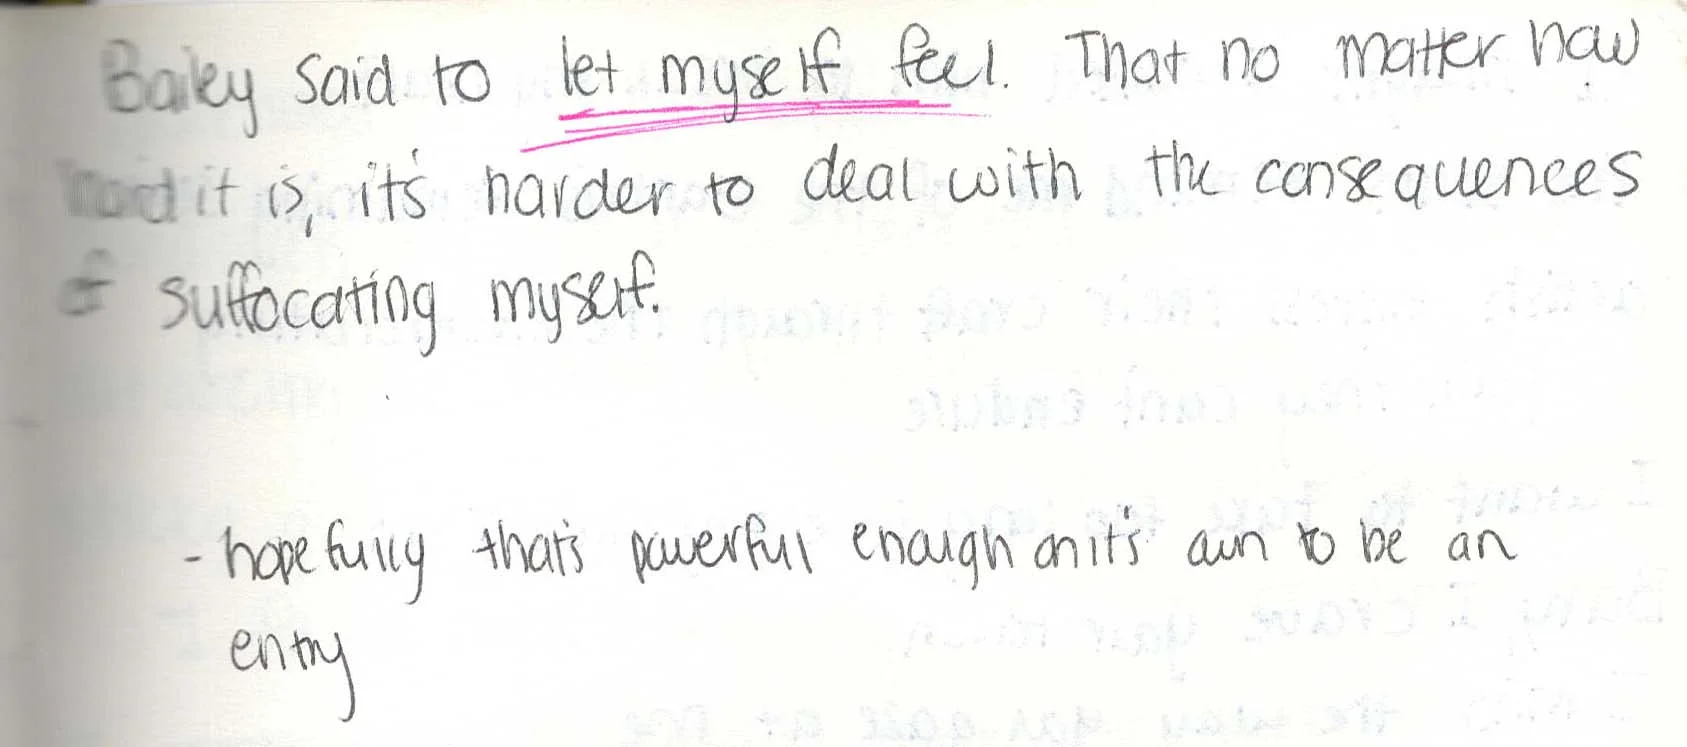 Bailey said to let myself feel. That no matter how
hard it is, it's harder to deal with the consequences
of suffocating myself.
- hopefully that's powerful enough on it's own to be an
entry